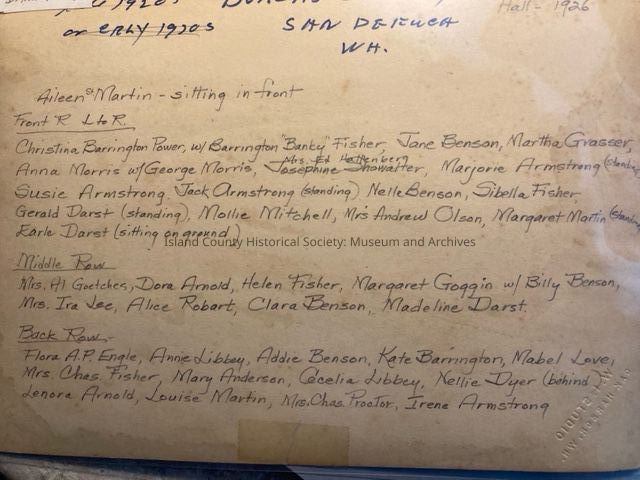 1920s
Hall - 1926
or erly 1920s SAN DE FUCA
WA.
Aileen Martin - sitting in front
Front R L to R.
Christina Barrington Power, w/ Barrington "Banky" Fisher, Jane Benson, Martha Grasser,
Mrs. Ed Hattenberg
Anna Morris w/ George Morris, Josephine Showalter, Marjorie Armstrong
Susie Armstrong, Jack Armstrong (standing) Nelle Benson, Sibella Fisher,
Gerald Darst (standing), Mollie Mitchell, Mrs Andrew Olson, Margaret Martin
Earle Darst (sitting on ground)
Island County Historical Society: Museum and Archives
Middle Row
Mrs. Al Goetches, Dora Arnold, Helen Fisher, Margaret Goggin w/ Billy Benson,
Mrs. Ira Lee, Alice Robart, Clara Benson, Madeline Darst.
Back Row-
Flora A.P. Engle, Annie Libbey, Addie Benson, Kate Barrington, Mabel Love,
Mrs Chas. Fisher, Mary Anderson, Cecelia Libbey, Nellie Dyer (behind)
Lenora Arnold, Louise Martin, Mrs. Chas. Proctor, Irene Armstrong
STUDIO